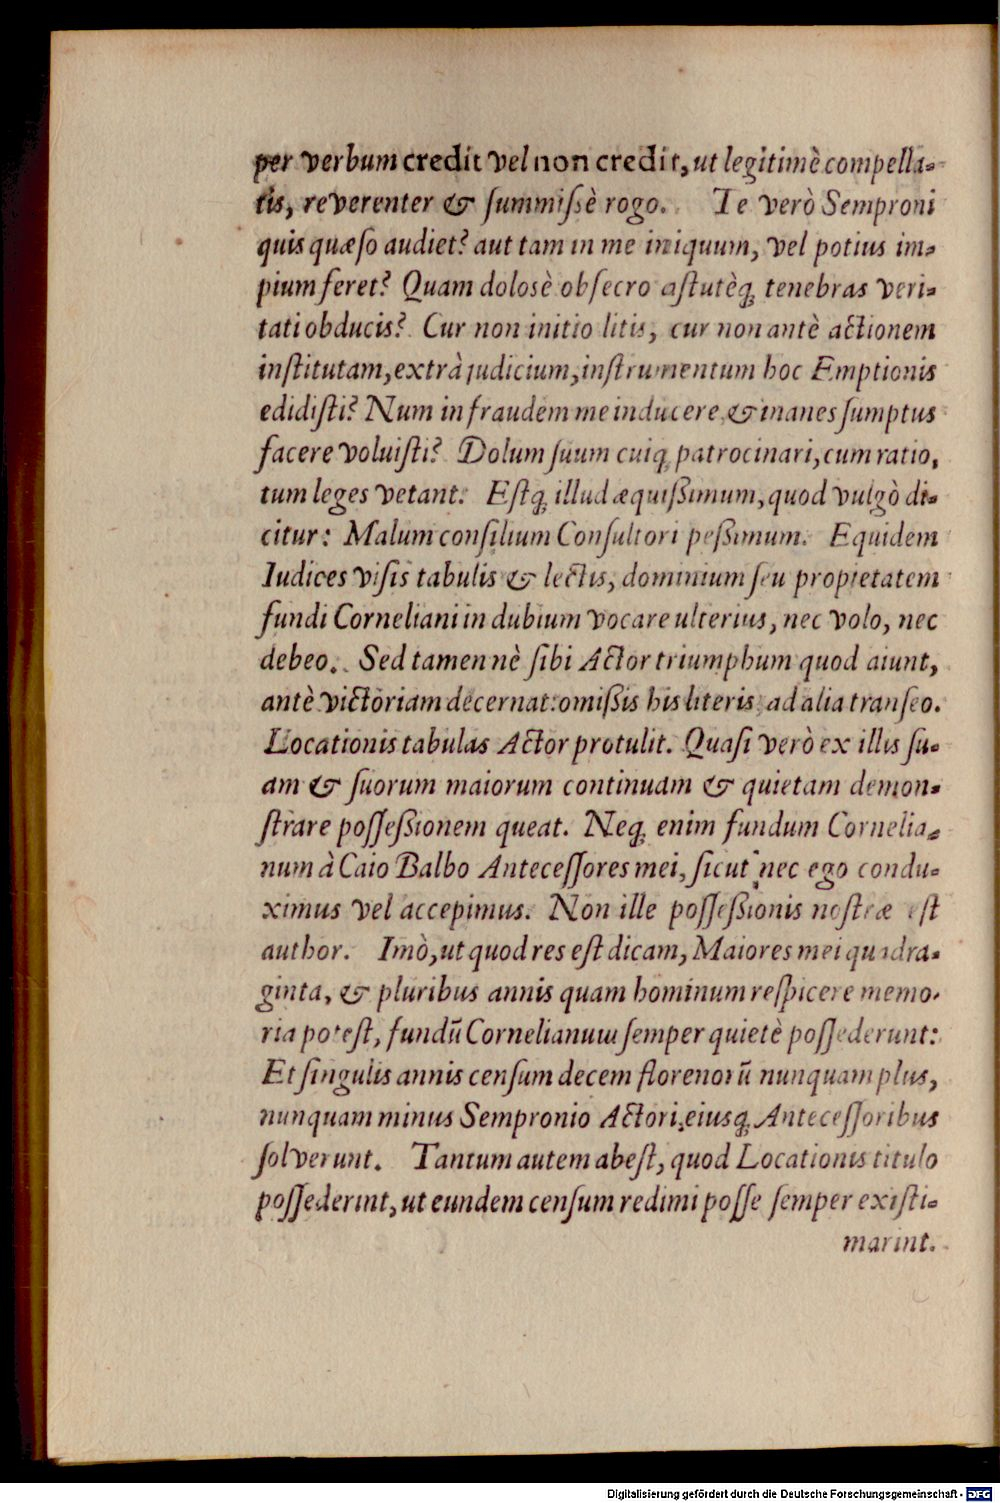 per verbum credit vel non credit, ut legitimè compella-
tis, reverenter & ſummiſsè rogo. Te verò Semproni
quis quæſo audiet? aut tam in me iniquum, vel potius im-
pium feret? Quam dolosè obſecro aſtutèq; tenebras veri-
tati obducis? Cur non initio litis, cur non antè actionem
inſtitutam, extrà judicium, inſtrumentum hoc Emptionis
edidiſti? Num in fraudem me inducere, & inanes ſumptus
facere voluiſti? Dolum ſuum cuiq; patrocinari, cum ratio,
tum leges vetant. Eſtq; illud æquiſsimum, quod vulgò di-
citur: Malum conſilium Conſultori peſsimum. Equidem
Iudices viſis tabulis & lectis, dominium ſeu proprietatem
fundi Corneliani in dubium vocare ulterius, nec volo, nec
debeo. Sed tamen nè ſibi Actor triumphum quod aiunt,
antè victoriam decernat: omiſsis his literis ad alia tranſeo.
Locationis tabulas Actor protulit. Quaſi verò ex illis ſu-
am & ſuorum maiorum continuam & quietam demon-
ſtrare poſſeſsionem queat. Neq; enim fundum Cornelia-
num à Caio Balbo Anteceſſores mei, ſicut nec ego condu-
ximus vel accepimus. Non ille poſſeſsionis noſtræ eſt
author. Imò, ut quod res eſt dicam, Maiores mei quadra-
ginta, & pluribus annis quam hominum reſpicere memo-
ria poteſt, fundū Cornelianum ſemper quietè poſſederunt:
Et ſingulis annis cenſum decem florenorū nunquam plus,
nunquam minus Sempronio Actori, eiusq; Anteceſſoribus
ſolverunt. Tantum autem abeſt, quod Locationis titulo
poſſederint, ut eundem cenſum redimi poſſe ſemper exiſti-
marint.
Digitalisierung gefördert durch die Deutsche Forschungsgemeinschaft - DFG